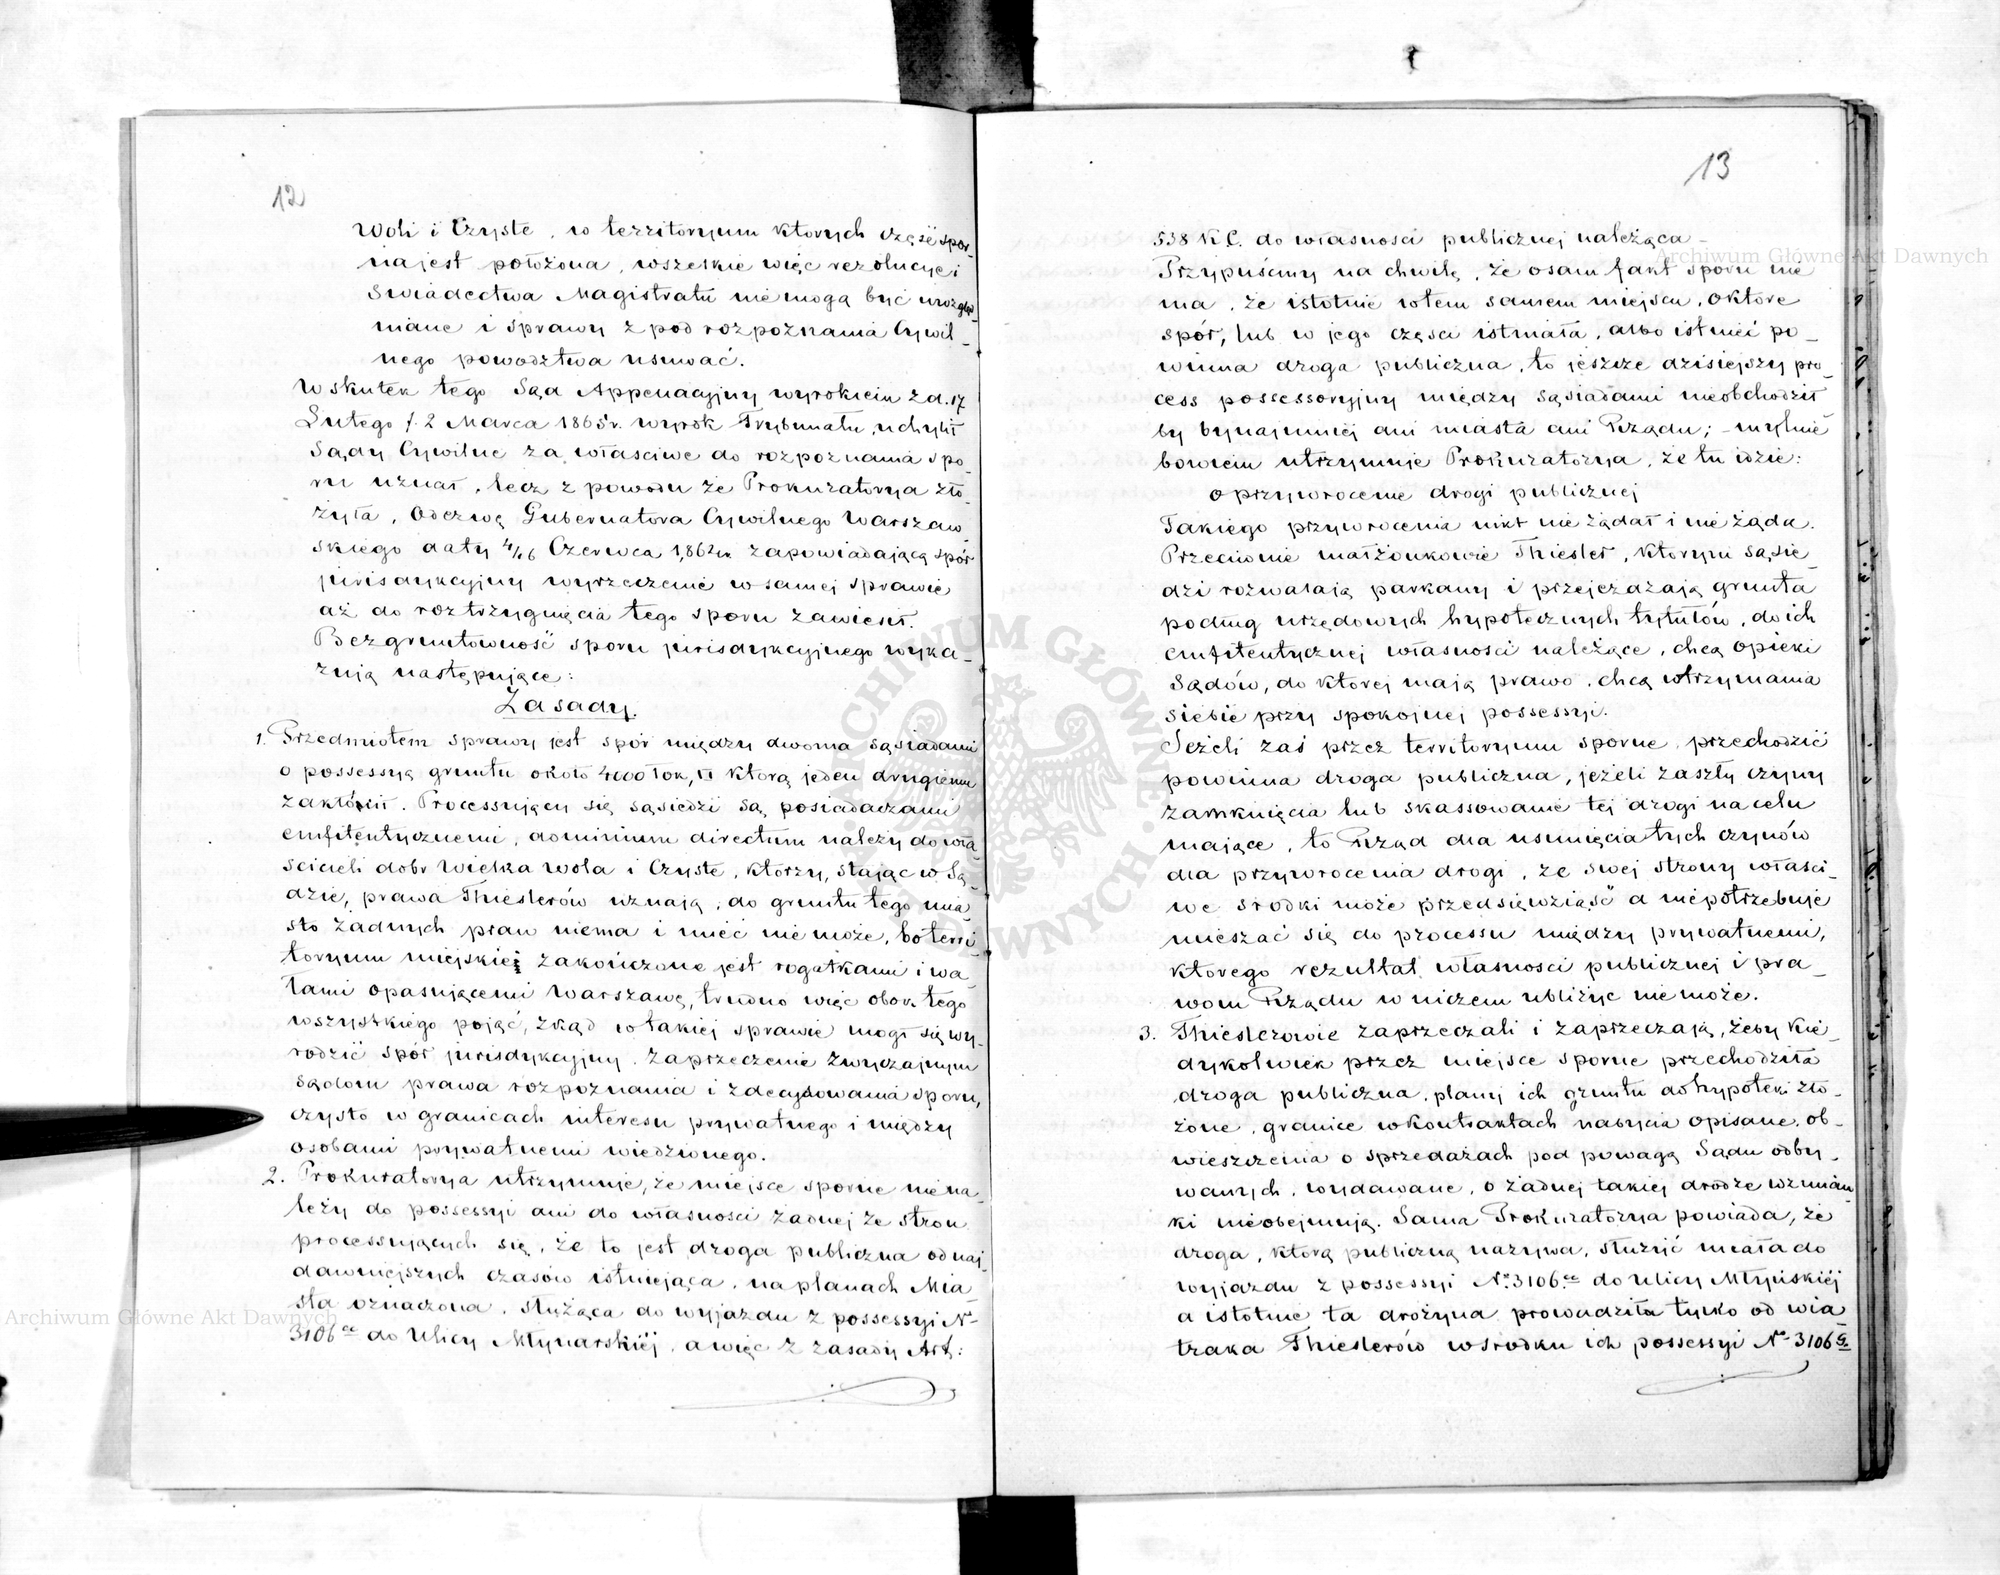 12
Woli i Czyste, w territoryum których część spor
na jest położona, wszelkie więc rezolucye i
Swiadectwa Magistratu nie mogą być uwzglę
niane i sprawy z pod rozpoznania Cywil_
nego powództwa usuwać.
W skutek tego Sąd Appellacyjny wyrokiem z d. 17
Lutego /. 2 Marca 1865 r. wyrok Trybunału uchylił
Sądy Cywilne za właściwe do rozpoznania spo_
ru uznał, lecz z powodu że Prokuratorya zło_
żyła, Odezwę Gubernatora Cywilnego Warszaw
skiego daty 4/16 Czerwca 1862 r. zapowiadającą spór
jurisdykcyjny wyrzeczenie w samej sprawie
aż do roztrzygnięcia tego sporu zawiesił.
Bezgruntowność sporu jurisdykcyjnego wyka_
zują następujące:
Zasady.
1. Przedmiotem sprawy jest spór między dwoma sąsiadami
o possessyą gruntu około 4000 łok, □ którą jeden drugiemu
zakłócił. Processujący się sąsiedzi są posiadaczami
emfiteutycznemi, dominium directum należy do wła_
ścicieli dobr Wielka Wola i Czyste, którzy, stając w Są_
dzie, prawa Thieslerów uznają, do gruntu tego mia_
sto żadnych praw niema i mieć nie może, bo terri
toryum miejskie zakończone jest rogatkami i wa_
łami opasującemi Warszawę, trudno więc obok tego
wszystkiego pojąć, zkąd w takiej sprawie mógł się wy_
rodzić spór jurisdykcyjny. Zaprzeczenie zwyczajnym
Sądom prawa rozpoznania i zdecydowania sporu,
czysto w granicach interesu prywatnego i między
osobami prywatnemi wiedzionego.
2. Prokuratorya utrzymuje, że miejsce sporne nie na_
leży do possessyi ani do własności żadnej ze stron
processujących się, że to jest droga publiczna od naj_
dawniejszych czasów istniejąca, na planach Mia_
sta oznaczona, służąca do wyjazdu z possessyi No
3106 ce do Ulicy Młynarskiej, a więc z zasady Art:
13
538 K.C. do własności publicznej należąca _
Przypuśćmy na chwilę, że o sam fakt sporu nie
ma, że istotnie w tem samem miejscu, o które
spór, lub w jego części istniała, albo istnieć po_
winna droga publiczna, to jeszcze dzisiejszy pro_
cess possessoryjny między sąsiadami nieobchodził
by bynajmniej ani miasta ani Rządu; – mylnie
bowiem utrzymuje Prokuratorya, że tu idzie:
o przywrócenie drogi publicznej
Takiego przywrócenia nikt nie żądał i nie żąda.
Przeciwnie małżonkowie Thiesler, którym sąsie_
dzi rozwalają parkany i przejeżdżają grunta
podług urzędowych hypotecznych tytułów, do ich
emfiteutycznej własności należące, chcą opieki
Sądów, do której mają prawo, chcą utrzymania
siebie przy spokojnej possessyi.
Jeżeli zaś przez territoryum sporne przechodzić
powinna droga publiczna, jeżeli zaszły czyny
zamknięcia lub skassowanie tej drogi na celu
mające, to Rząd dla usunięcia tych czynów
dla przywrócenia drogi, ze swej strony właści_
we srodki może przedsięwziąść a niepotrzebuje
mieszać się do processu między prywatnemi,
którego rezultat własności publicznej i pra_
wom Rządu w niczem ubliżyć nie może.
3. Thieslerowie zaprzeczali i zaprzeczają, żeby kie_
dykolwiek przez miejsce sporne przechodziła
droga publiczna, plany ich gruntu do hypoteki zło_
żone, granice w kontraktach nabycia opisane, ob_
wieszczenia o sprzedażach pod powagą Sądu odby_
wanych, wydawane, o żadnej takiej drodze wzmian
ki nieobejmują. Sama Prokuratorya powiada, że
droga, którą publiczną nazywa, służyć miała do
wyjazdu z possessyi No 3106 ce do Ulicy Młyńskiej
a istotnie ta drożyna prowadziła tylko od wia_
traka Thieslerów w środku ich possessyi No 3106 G.
Archiwum Główne Akt Dawnych
Archiwum Główne Akt Dawnych
ARCHIWUM GŁÓWNE AKT DAWNYCH